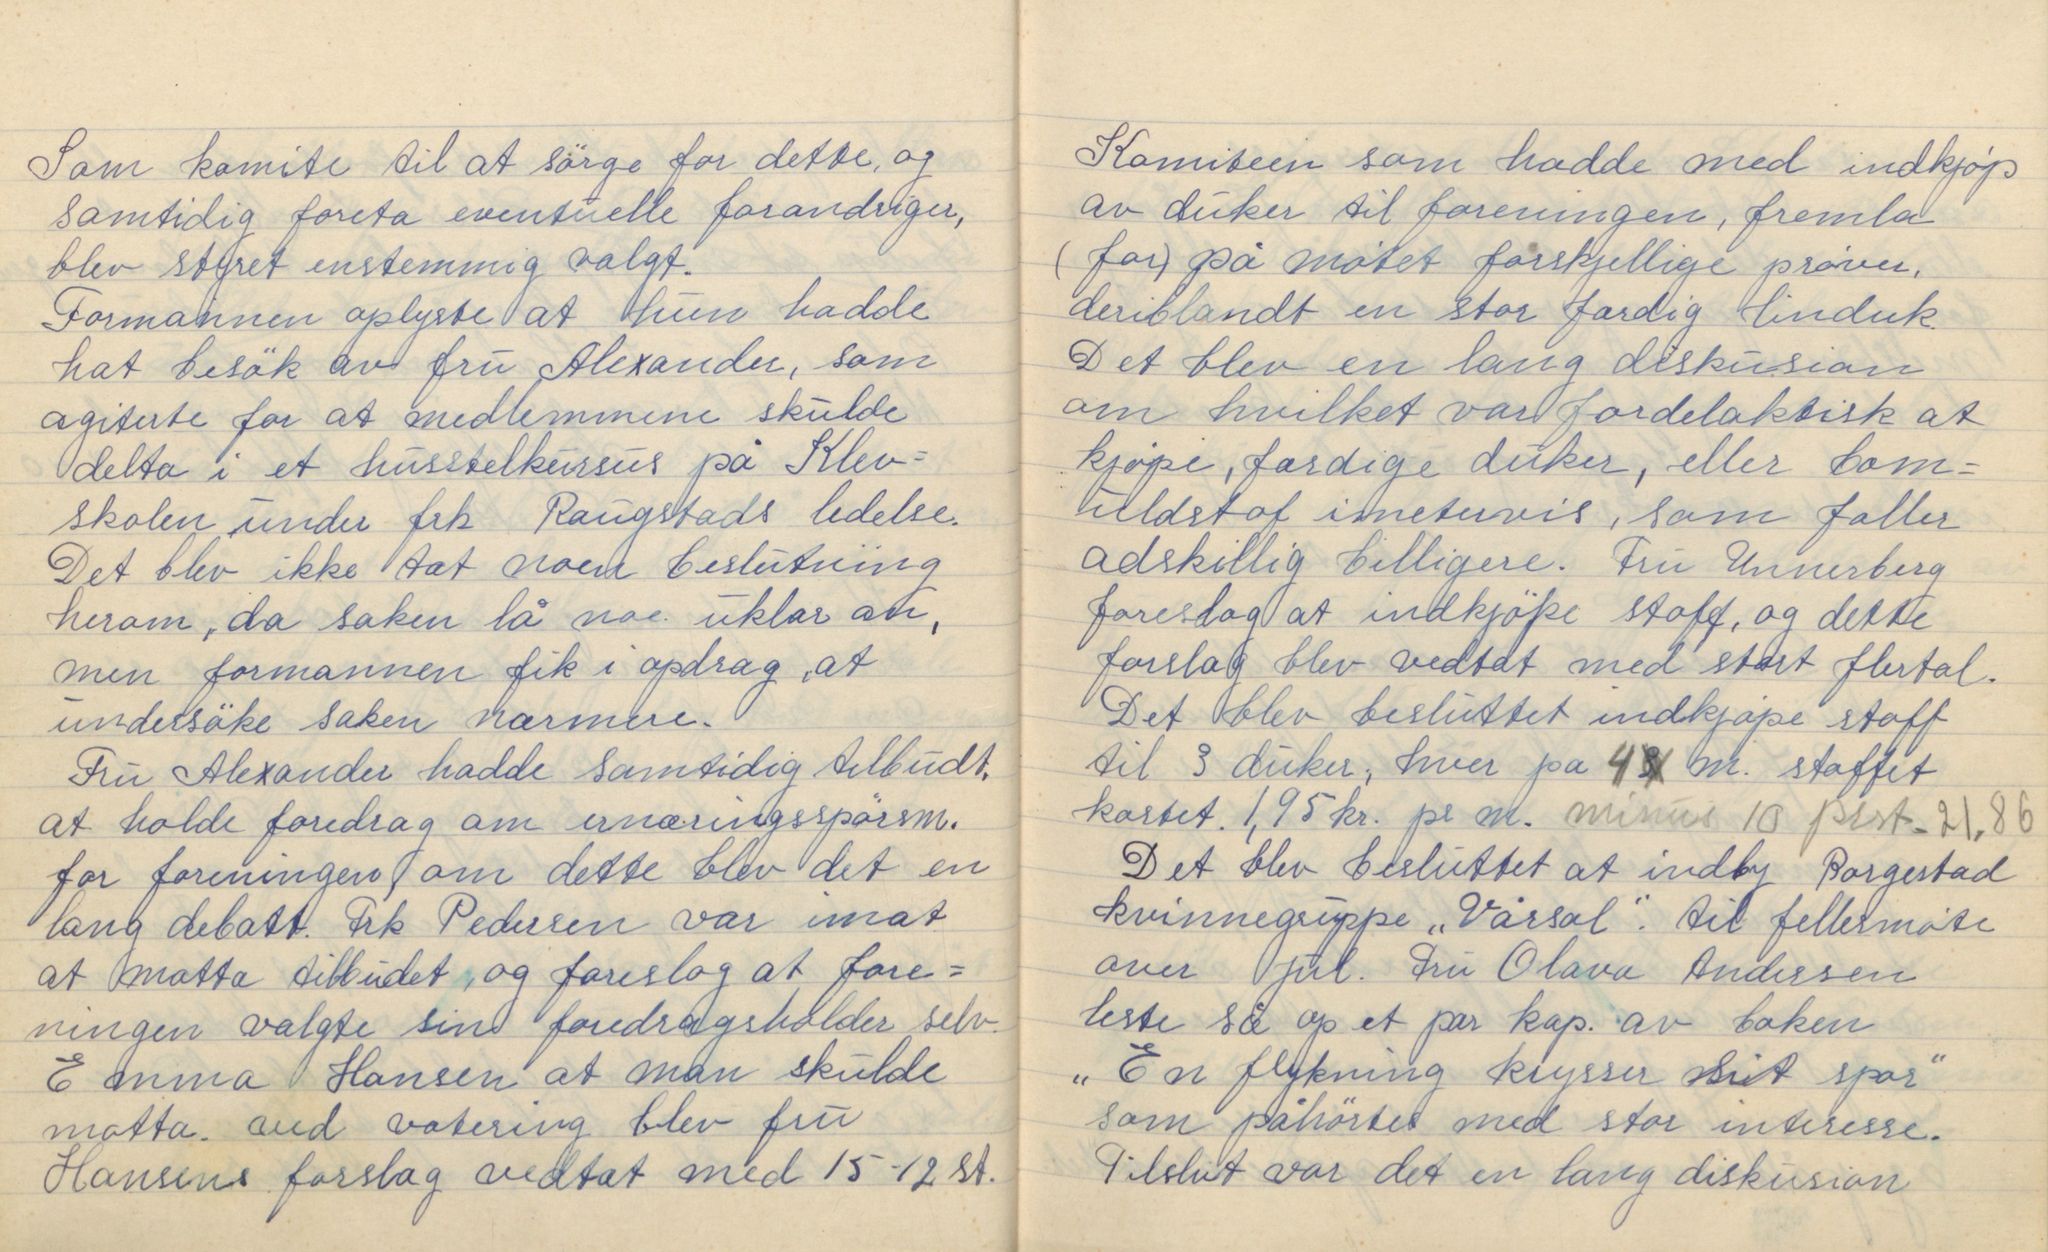 Som komite til at sörge for dette, og
samtidig foreta eventuelle forandriger,
blev styret enstemmig valgt.
Formannen oplyste at hun hadde
hat besök av fru Alexander, som
agiterte for at medlemmene skulde
delta i et husstelkursus på Klev=
skolen under frk Raugstads ledelse.
Det blev ikke tat noen beslutning
herom, da saken lå noe uklar an,
men formannen fik i opdrag, at
undersöke saken nærmere.
Fru Alexander hadde samtidig tilbudt,
at holde foredrag om ernæringsspörsm.
for foreningen, om dette blev det en
lang debatt. Frk Pedersen var imot
at motta tilbudet, og foreslog at fore=
ningen valgte sin foredragsholder selv.
Emma Hansen at man skulde
motta. ved votering blev fru
Hansens forslag vedtat med 15-12 st.
Komiteen som hadde med indkjøp
av duker til foreningen, fremla
(for) på møtet forskjellige prøver,
deriblandt en stor færdig linduk.
Det blev en lang diskusion
om hvilket var fordelaktisk at
kjøpe, færdige duker, eller bom=
uldstof imetervis, som faller
adskillig billigere. Fru Unnerberg
foreslog at indkjöpe stoff, og dette
forslag blev vedtat med stort flertal.
Det blev besluttet indkjøpe stoff
til 3 duker, hver pa 4 m. stoffet
kostet. 1,95 kr. pr m. minus 10 prst. 21,86
Det blev besluttet at indby Borgestad
kvinnegruppe „Vårsol". til fellesmøte
over jul. Fru Olava Andersen
leste så op et par kap. av boken
„En flykning krysser sit spor"
som påhörtes med stor interesse.
Tilslut var det en lang diskusion